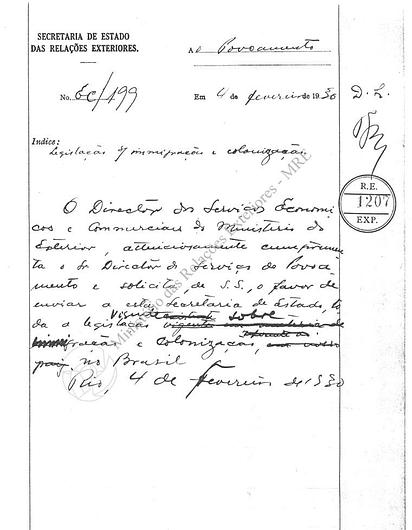 SECRETARIA DE ESTADO
DAS RELAÇÕES EXTERIORES.
Ao Povoamento
No. EC/199
Em 4 de fevereiro de 1930
D. L.
Indice:
Legislação s/ immigração e colonização
R.E.
1207
EXP.
O Director dos Serviços Econom
icos e Commerciaes do Ministerio do
Exterior, attenciosamente cumprimen
ta o Sr Director do Serviço de Povoa
mento e solicita de S.S. o favor de
enviar a esta Secretaria de Estado, to
da a legislação vigente sobre
immigração e colonização,
no Brasil
Rio, 4 de Fevereiro de 1930
Ministério das Relações Exteriores - MRE